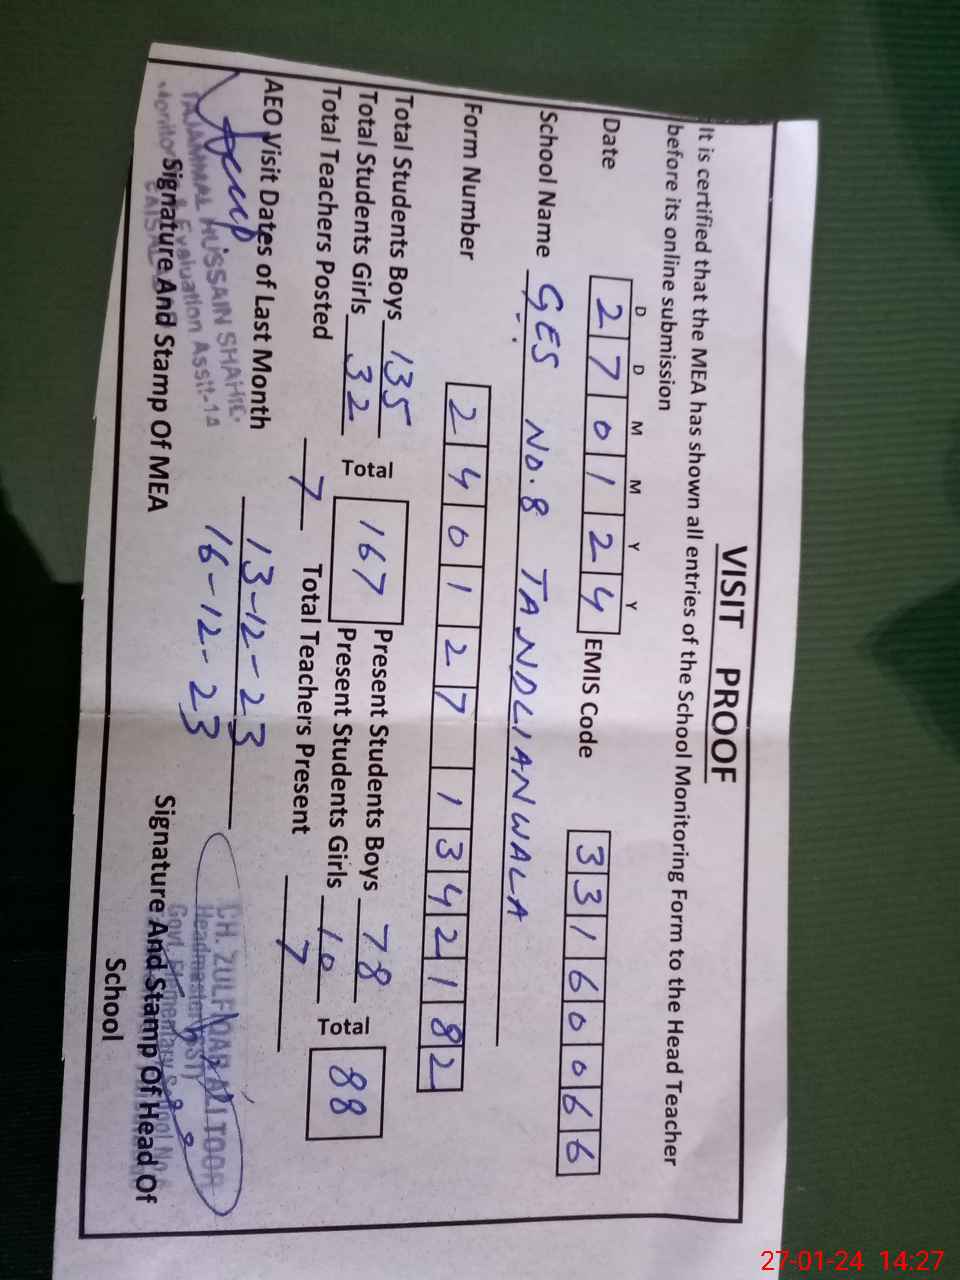 VISIT PROOF
It is certified that the MEA has shown all entries of the School Monitoring Form to the Head Teacher
before its online submission
D D M M Y Y
Date 2 7 0 1 2 4 EMIS Code 3 3 1 6 0 0 6 6
School Name GES NO.8 TANDLIANWALA
Form Number 2 4 0 1 2 7 1 3 4 2 1 8 2
Total Students Boys 135 Total 167 Present Students Boys 78 Total 88
Total Students Girls 32 Present Students Girls 10
Total Teachers Posted 7 Total Teachers Present 7
AEO Visit Dates of Last Month 13-12-23
16-12-23
TAJAMMAL HUSSAIN SHAHID
Evaluation Asstt-14
Signature And Stamp Of MEA
CH. ZULFIQAR ALI TOOR
Headmaster (SST)
Govt. Elementary School No.
Signature And Stamp Of Head Of
School
27-01-24 14:27